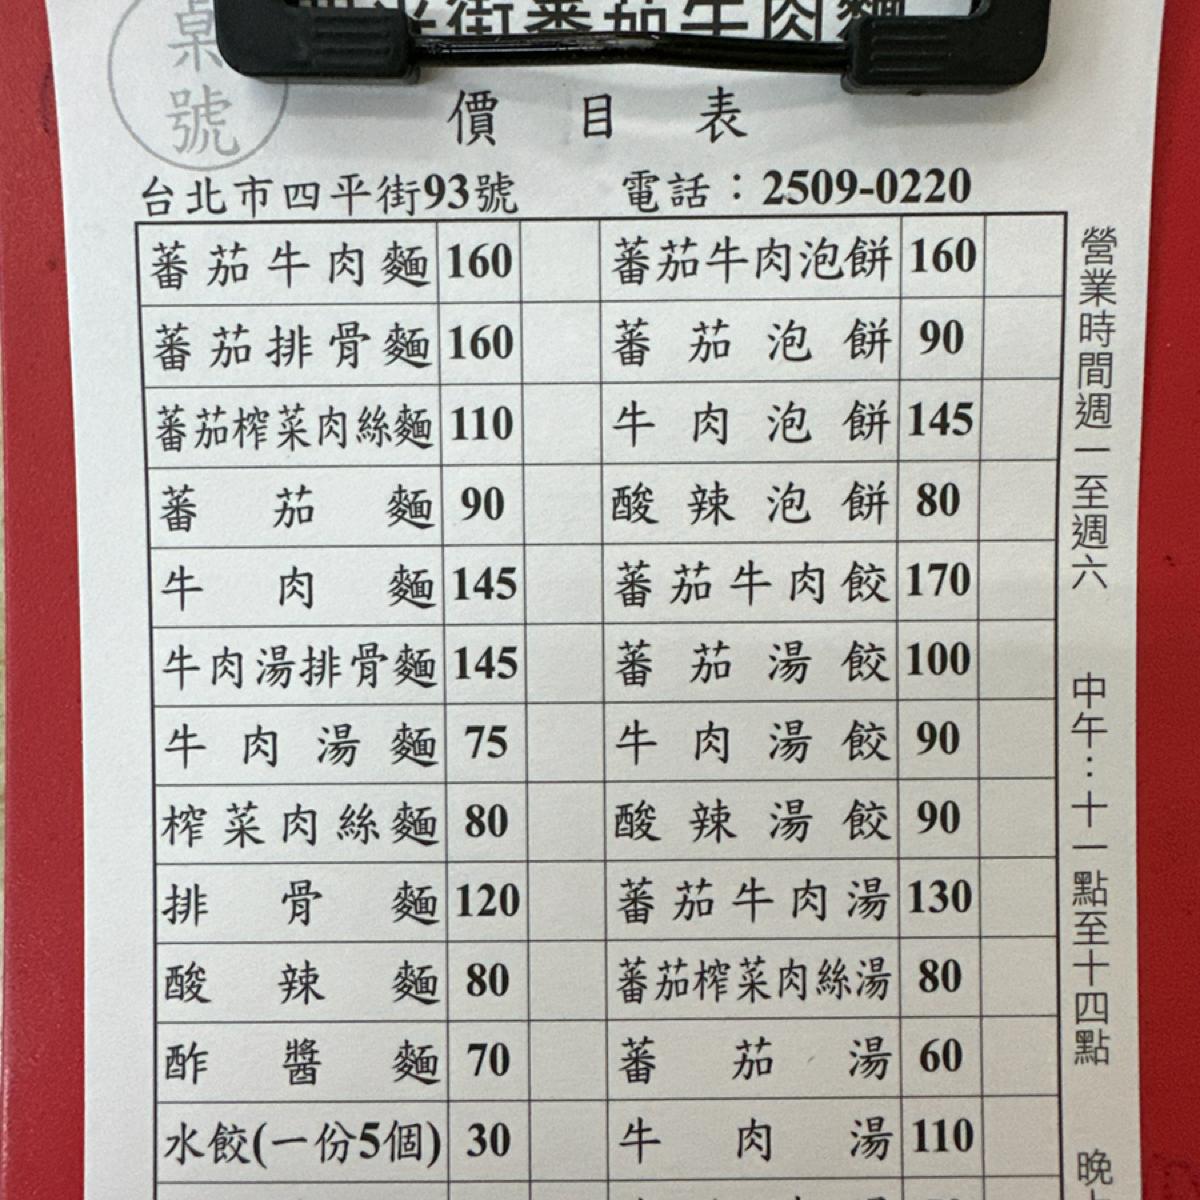 桌號
四平街蕃茄牛肉麵
價目表
台北市四平街93號 電話：2509-0220
蕃茄牛肉麵 160 蕃茄牛肉泡餅 160
蕃茄排骨麵 160 蕃茄泡餅 90
蕃茄榨菜肉絲麵 110 牛肉泡餅 145
蕃茄麵 90 酸辣泡餅 80
牛肉麵 145 蕃茄牛肉餃 170
牛肉湯排骨麵 145 蕃茄湯餃 100
牛肉湯麵 75 牛肉湯餃 90
榨菜肉絲麵 80 酸辣湯餃 90
排骨麵 120 蕃茄牛肉湯 130
酸辣麵 80 蕃茄榨菜肉絲湯 80
酢醬麵 70 蕃茄湯 60
水餃(一份5個) 30 牛肉湯 110
營業時間週一至週六 中午：十一點至十四點 晚